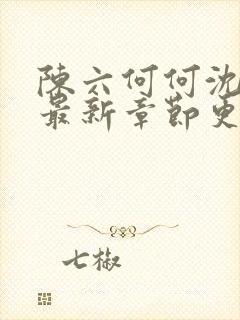 陳六何何沈
最新章節更
七椒